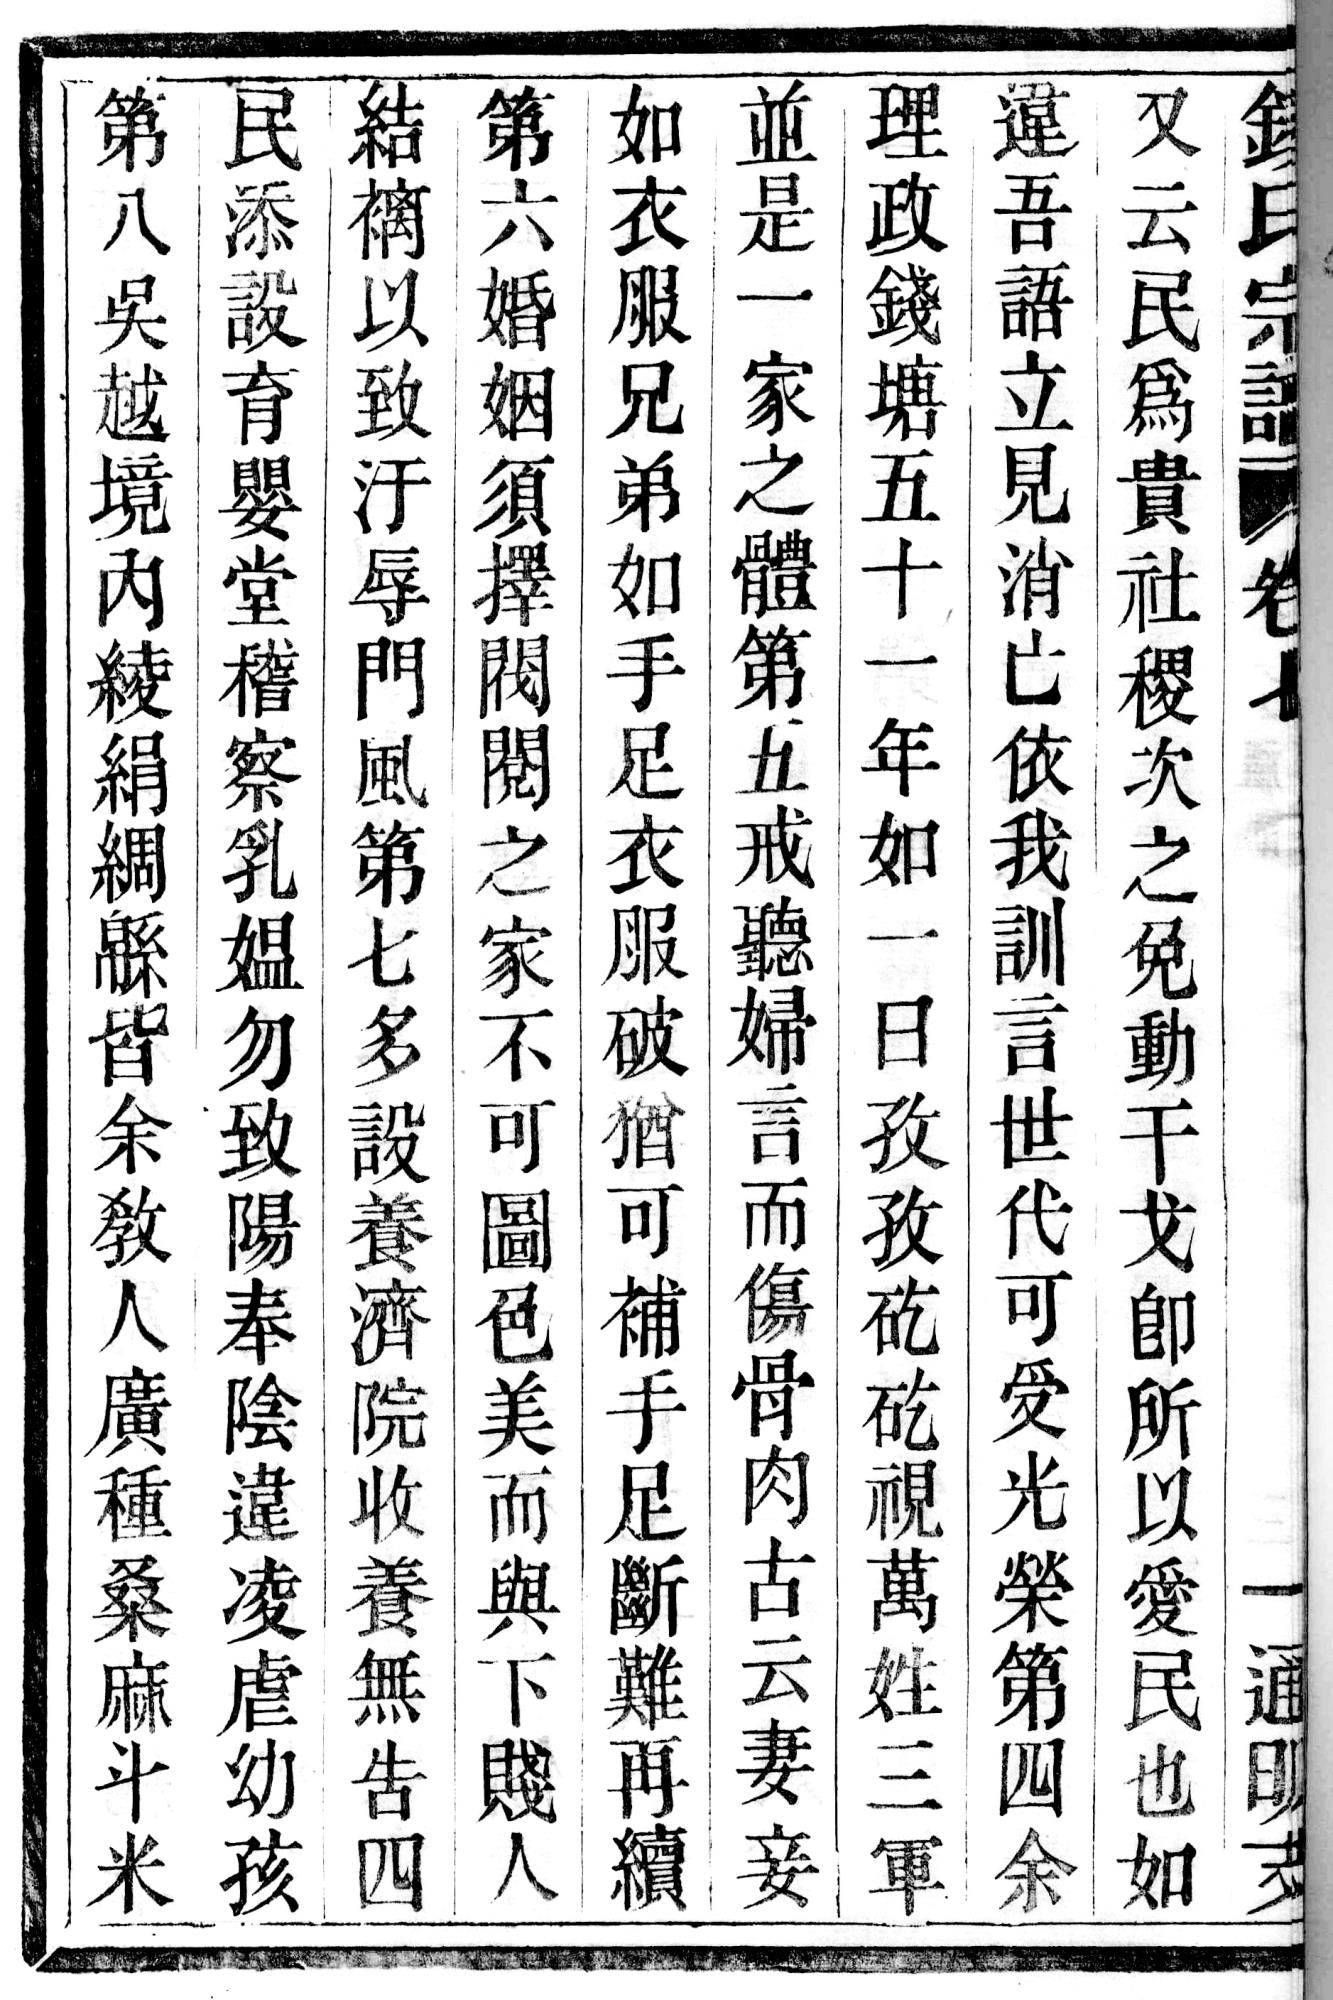 錢氏宗譜 卷七 一 通明支
又云民爲貴社稷次之免動干戈卽所以愛民也如
違吾語立見消亡依我訓言世代可受光榮第四余
理政錢塘五十一年如一日孜孜矻矻視萬姓三軍
並是一家之體第五戒聽婦言而傷骨肉古云妻妾
如衣服兄弟如手足衣服破猶可補手足斷難再續
第六婚姻須擇閥閱之家不可圖色美而與下賤人
結褵以致汙辱門風第七多設養濟院收養無告四
民添設育嬰堂稽察乳媼勿致陽奉陰違凌虐幼孩
第八吳越境內綾絹綢緜皆余敎人廣種桑麻斗米